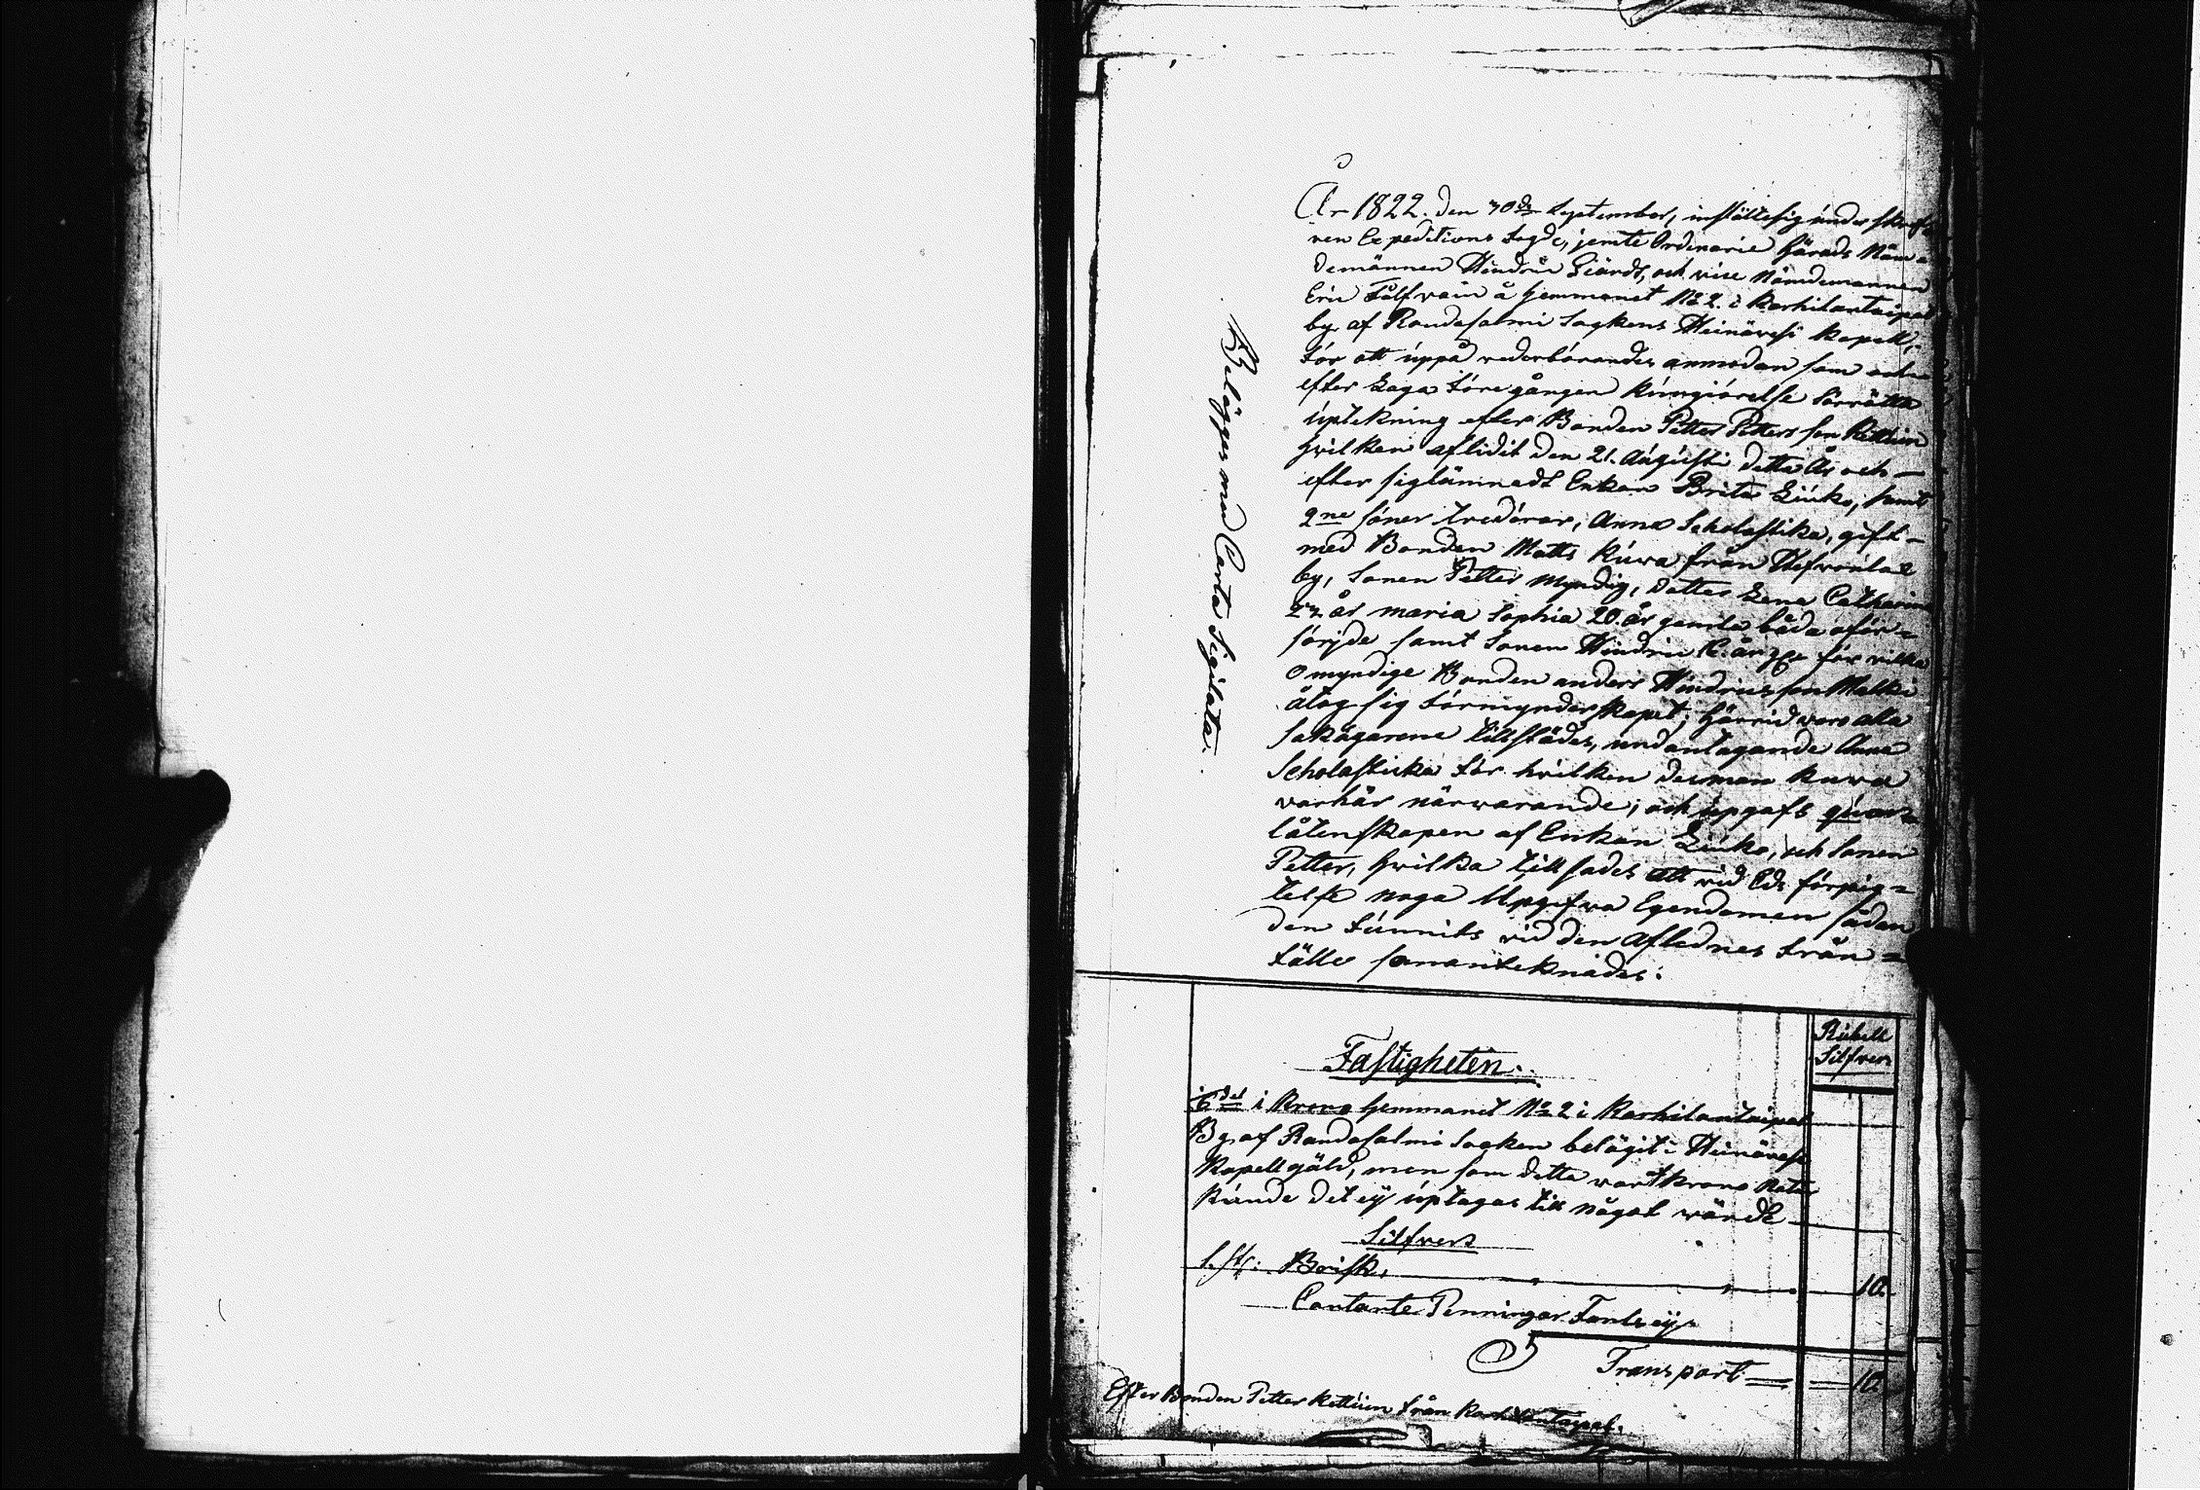 År 1822. den 30de September, instältesig underskref-
ven Expeditions Fogde, jemte Ordinarie Härads Näm-
demännen Hindric Giärdt, och vice Nämdemannen
Eric Tålfvain å hemmanet No 2. i Karhilantaipal
by af Randasalmi Sockens Heinävesi Kapell,
för att uppå vederbörandes anmodan som och
efter Laga föregången Kungiörelse förrätta
úptekning efter Bonden Petter Petters son Kettúin
hvilken aflidit den 21. Augústi detta År och
efter siglämnadt Enkan Brita Liúko, samt
2ne söner tre dörar, Anna Scholastika, gift
med Bonden Matts Kúwa från
by, Sonen Petter Myndig, Dotter Lena Catharina
22 år maria Sophia 20. år gamla båda oför-
sörjde samt Sonen Hindric för vilka
omyndige Bonden anders Hindricsson Malki
åtog sig förmynderskapet; härvid voro alla
sakägarene tillstädes, undantagande Anna
Scholasticka för hvilken desman kuwa
varhär närwarande; och úpgafs qúar-
låtenskapen af Enkan Liúko, och Sonen
Petter, hvilka tillsades att vid Eds förpig-
telse noga Upgifwa Egendomen sådan
den fúnnits vid den Aflednes från-
fälle samanteknades:
Belägges med Carta Sigilata.
Rúbell
Silfver
Fastigheten.
del i Krono hemmanet No 2 i Karhilantaipal
By af Randasalmi Socken belägit i Heinävesi
Kapellgäld, men som detta vart krono
kúnde det ej úptagas till något wärde
Silfver
1. st: Brisk, 10.
Contante Penningar Fants ej
Transport 10.
Efter Bonden Petter Kettúin från Karhilantaipal.